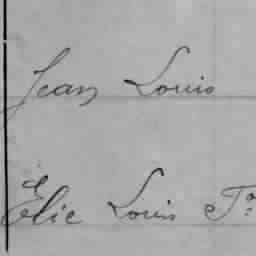 Jean Louis
Elie Louis Jo